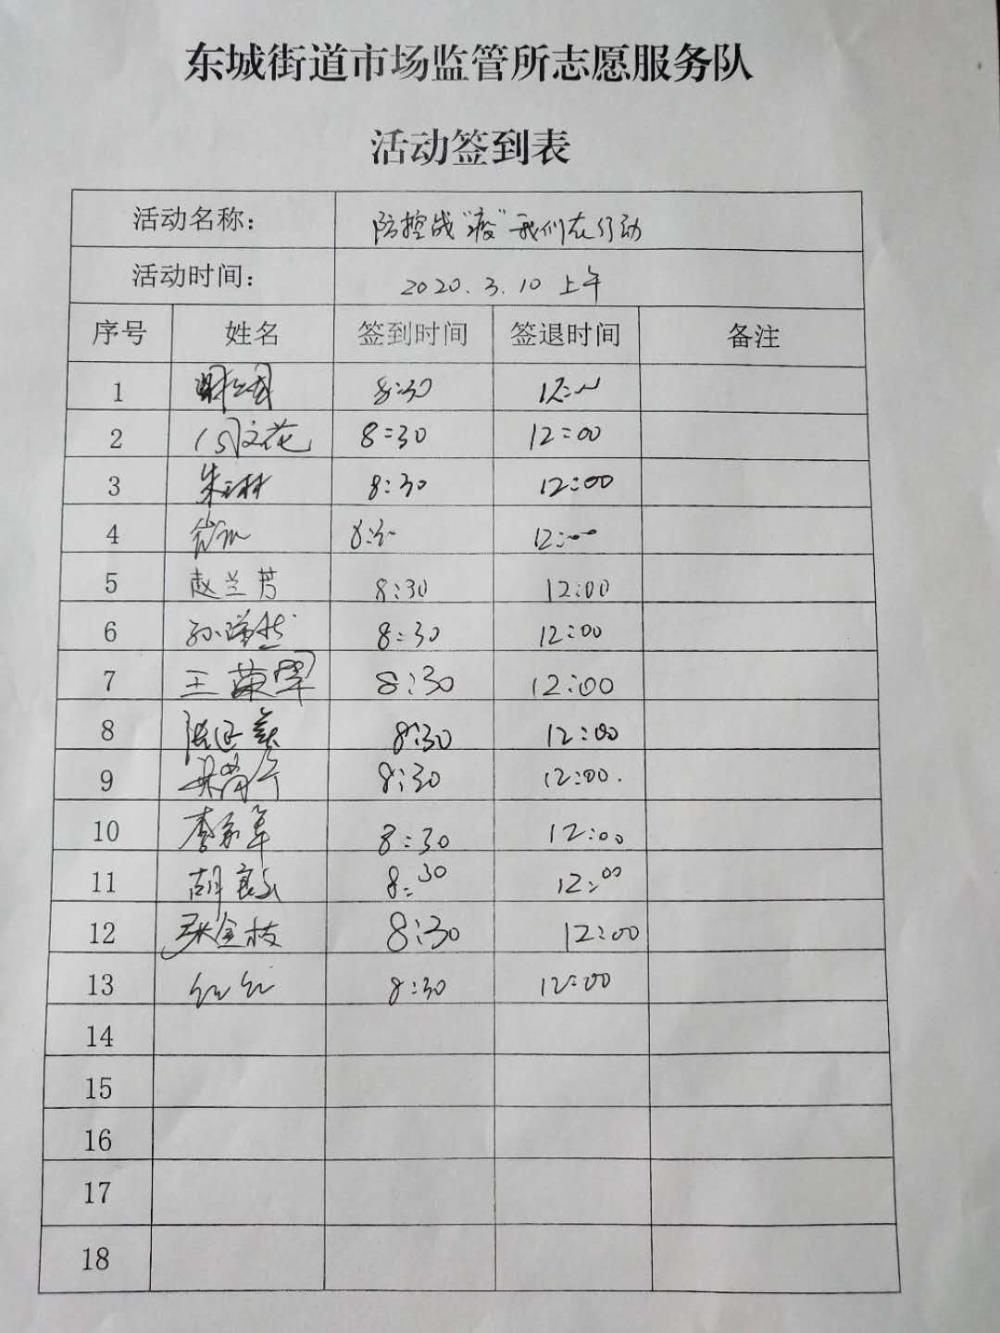 东城街道市场监管所志愿服务队
活动签到表
活动名称: 防控战“疫”我们在行动
活动时间: 2020.3.10 上午
序号 姓名 签到时间 签退时间 备注
1 8:30 12:00
2 闫文花 8:30 12:00
3 朱玉林 8:30 12:00
4 8:30 12:00
5 赵兰芳 8:30 12:00
6 8:30 12:00
7 8:30 12:00
8 8:30 12:00
9 8:30 12:00.
10 李家军 8:30 12:00
11 8:30 12:00
12 张金枝 8:30 12:00
13 8:30 12:00
14
15
16
17
18